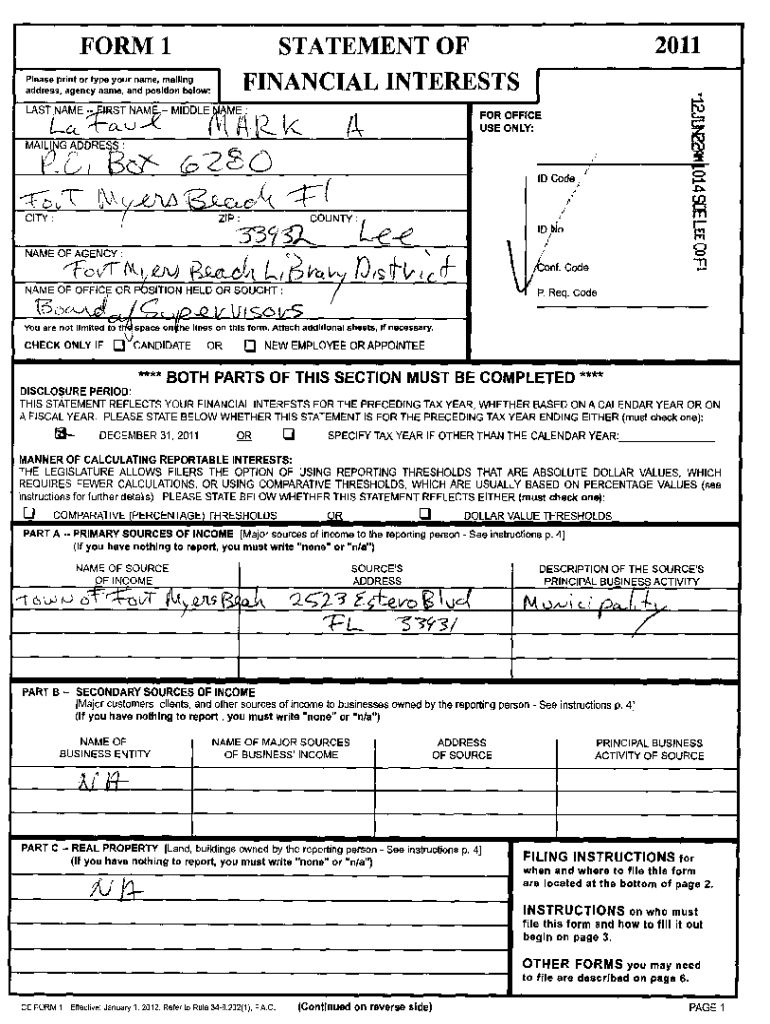 FORM 1 STATEMENT OF 2011
Please print or type your name, mailing
address, agency name, and position below:
FINANCIAL INTERESTS
LAST NAME -- FIRST NAME -- MIDDLE NAME :
MARK A
MAILING ADDRESS :
P.O. Box 6280
Fort Myers Beach Fl
CITY : ZIP : COUNTY :
33932 Lee
NAME OF AGENCY :
Fort Myers Beach Library District
NAME OF OFFICE OR POSITION HELD OR SOUGHT :
Board of Supervisors
You are not limited to the space on the lines on this form. Attach additional sheets, if necessary.
CHECK ONLY IF ☐ CANDIDATE OR ☐ NEW EMPLOYEE OR APPOINTEE
FOR OFFICE
USE ONLY:
ID Code
ID No
Conf. Code
P. Req. Code
'12JUN22AM1014 SOE LEE CO Fl
**** BOTH PARTS OF THIS SECTION MUST BE COMPLETED ****
DISCLOSURE PERIOD:
THIS STATEMENT REFLECTS YOUR FINANCIAL INTERESTS FOR THE PRECEDING TAX YEAR, WHETHER BASED ON A CALENDAR YEAR OR ON
A FISCAL YEAR. PLEASE STATE BELOW WHETHER THIS STATEMENT IS FOR THE PRECEDING TAX YEAR ENDING EITHER (must check one):
☒ DECEMBER 31, 2011 OR ☐ SPECIFY TAX YEAR IF OTHER THAN THE CALENDAR YEAR:
MANNER OF CALCULATING REPORTABLE INTERESTS:
THE LEGISLATURE ALLOWS FILERS THE OPTION OF USING REPORTING THRESHOLDS THAT ARE ABSOLUTE DOLLAR VALUES, WHICH
REQUIRES FEWER CALCULATIONS, OR USING COMPARATIVE THRESHOLDS, WHICH ARE USUALLY BASED ON PERCENTAGE VALUES (see
instructions for further details). PLEASE STATE BELOW WHETHER THIS STATEMENT REFLECTS EITHER (must check one):
☐ COMPARATIVE (PERCENTAGE) THRESHOLDS OR ☐ DOLLAR VALUE THRESHOLDS
PART A -- PRIMARY SOURCES OF INCOME [Major sources of income to the reporting person - See instructions p. 4]
(If you have nothing to report, you must write "none" or "n/a")
NAME OF SOURCE OF INCOME
SOURCE'S ADDRESS
DESCRIPTION OF THE SOURCE'S PRINCIPAL BUSINESS ACTIVITY
Town of Fort Myers Beah 2523 Estero Blvd Municipality
FL 33931
PART B -- SECONDARY SOURCES OF INCOME
[Major customers, clients, and other sources of income to businesses owned by the reporting person - See instructions p. 4]
(If you have nothing to report , you must write "none" or "n/a")
NAME OF BUSINESS ENTITY
NAME OF MAJOR SOURCES OF BUSINESS' INCOME
ADDRESS OF SOURCE
PRINCIPAL BUSINESS ACTIVITY OF SOURCE
N/A
PART C -- REAL PROPERTY [Land, buildings owned by the reporting person - See instructions p. 4]
(If you have nothing to report, you must write "none" or "n/a")
N/A
FILING INSTRUCTIONS for
when and where to file this form
are located at the bottom of page 2.
INSTRUCTIONS on who must
file this form and how to fill it out
begin on page 3.
OTHER FORMS you may need
to file are described on page 6.
CE FORM 1 Effective: January 1, 2012. Refer to Rule 34-8.202(1), F.A.C. (Continued on reverse side) PAGE 1